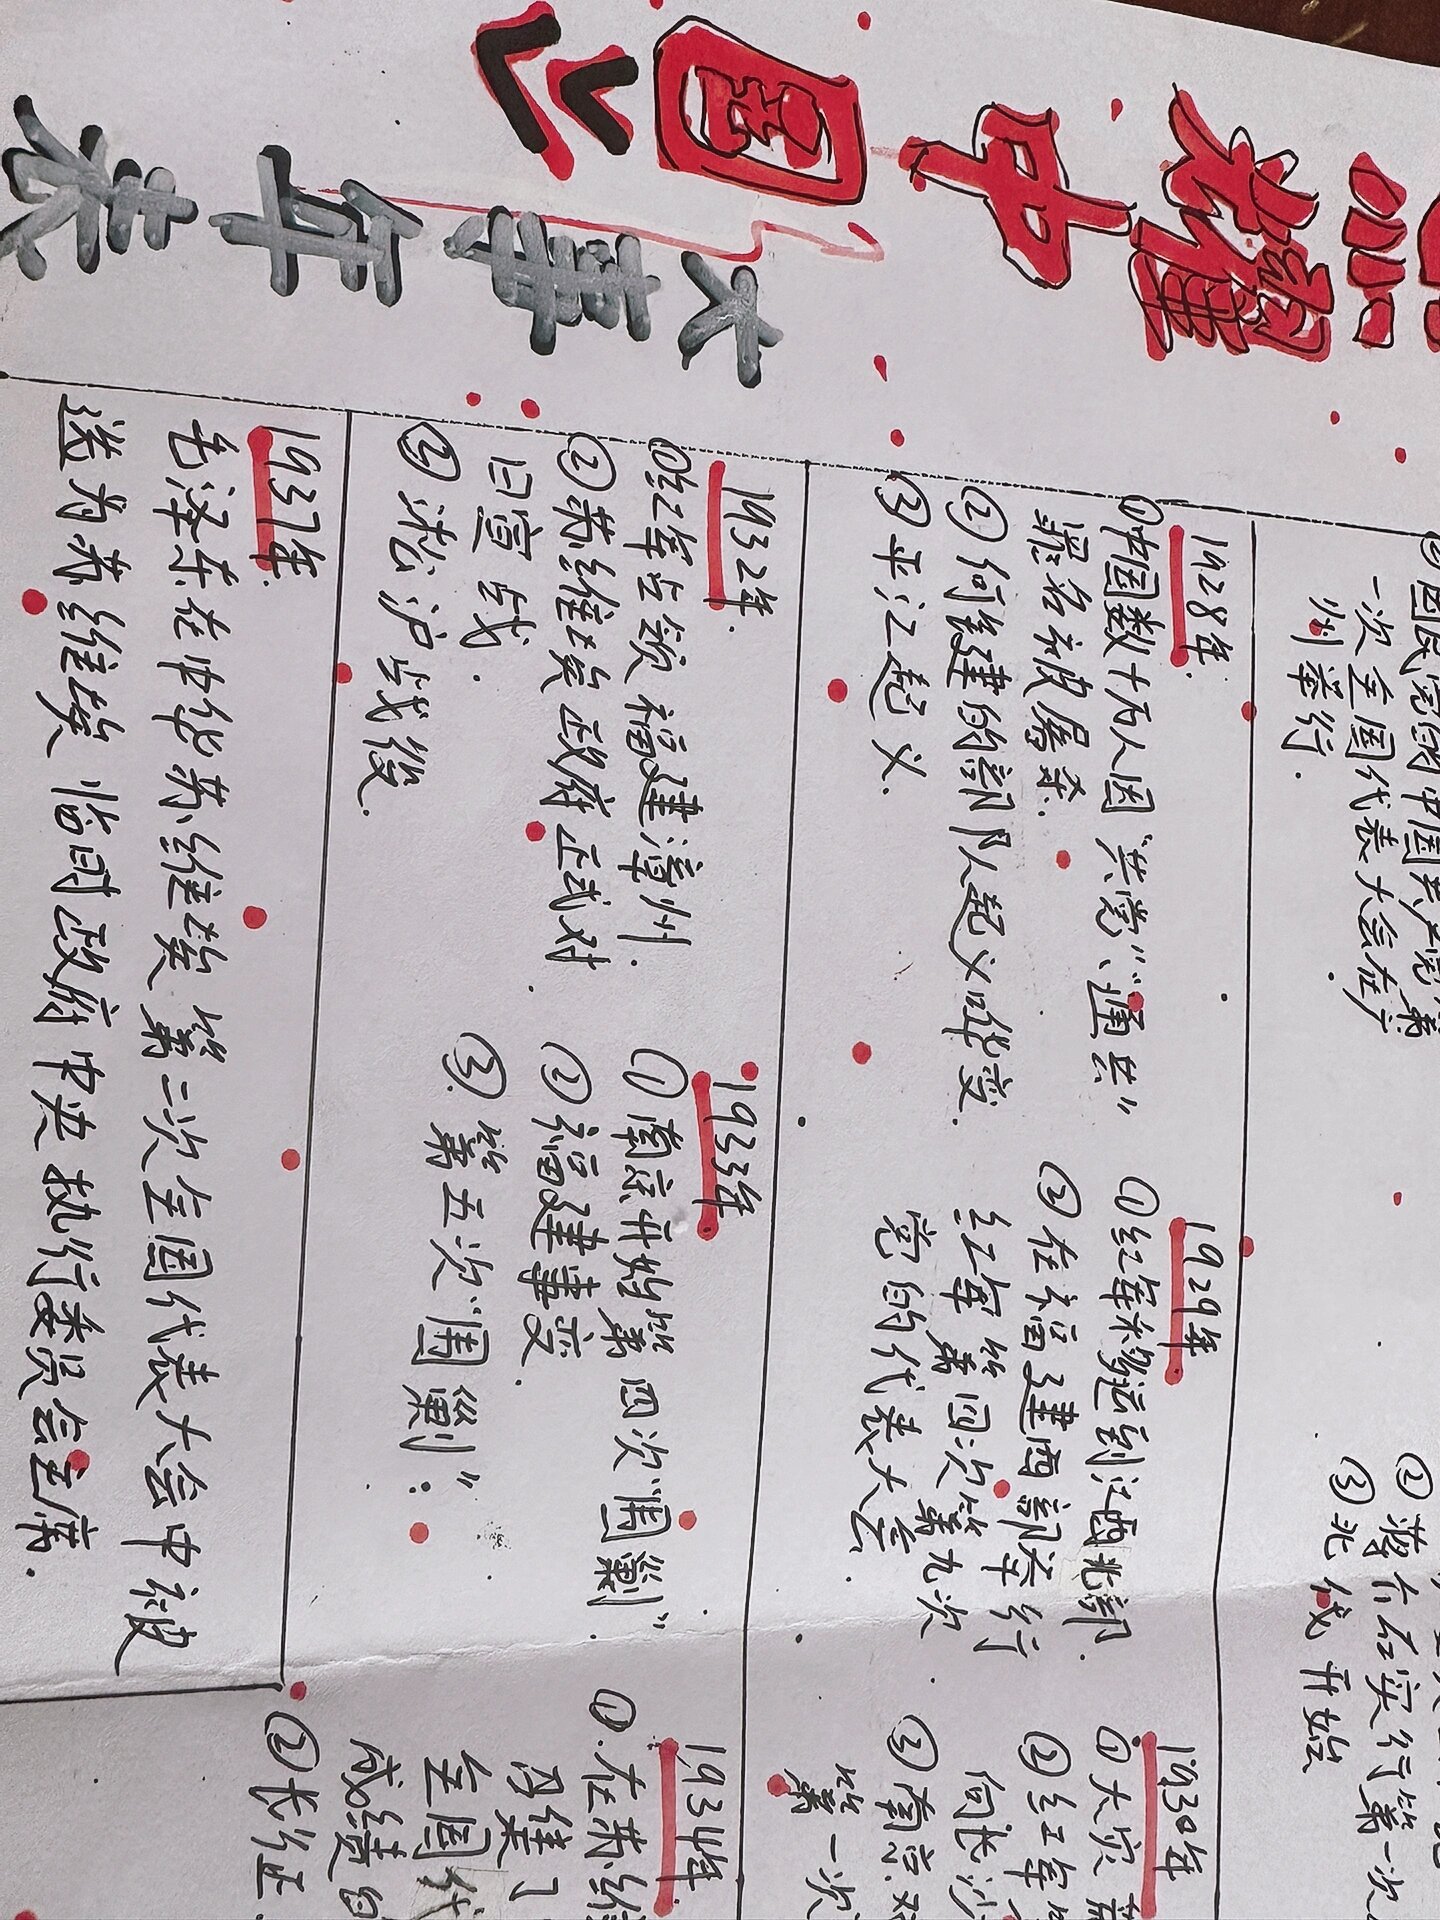 照耀中
国》
大事年表
国民党的中国共产党第
一次全国代表大会在广
州举行.
②蒋介石实行第一次
③北伐开始
1928年.
①中国数十万人因“共党”、“通共”
罪名被屠杀.
②何健的部队起义哗变.
③平江起义.
1929年.
①红军移到江西北部.
②在福建西部举行
红军第四次第九次
党的代表大会.
1930年
①大灾
②红军
向长沙
③南京对
第一次
1932年.
①红军占领福建漳州.
②苏维埃政府正式对
日宣战.
③淞沪战役.
1933年
①南京开始第四次“围剿”.
②福建事变.
③第五次“围剿”.
1934年.
①.在苏维
全国代
成绩
②长征.
1937年.
毛泽东在中华苏维埃第二次全国代表大会中被
送为苏维埃临时政府中央执行委员会主席.